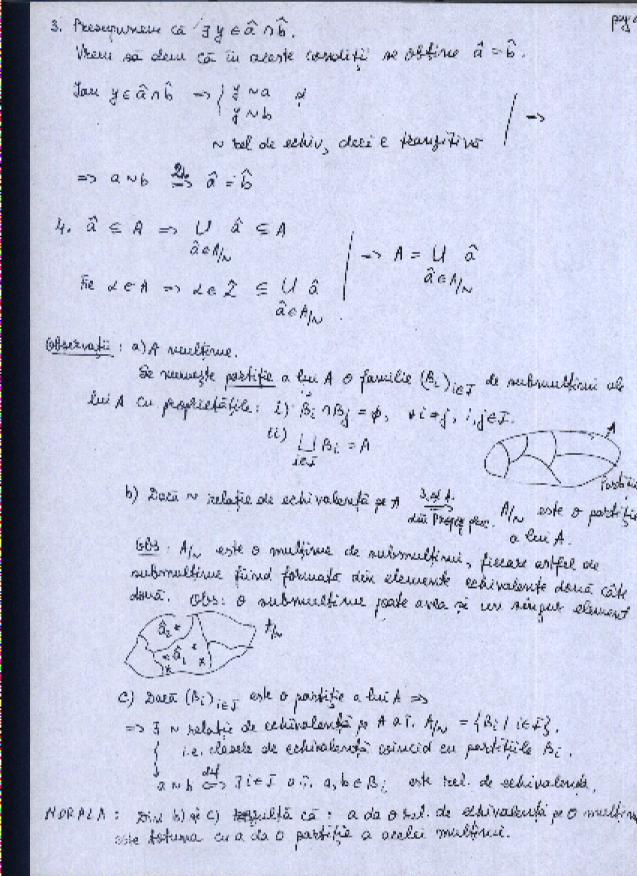 3. Presupunem că ∃ y ∈ â ∩ b̂.
Vrem să dem că în aceste condiții se obține â = b̂.
Iau y ∈ â ∩ b̂ => { y ~ a și
y ~ b
~ rel de echiv, deci e tranzitivă | =>
=> a ~ b =2.=> â = b̂
4. â ⊆ A => ∪ â ⊆ A
â∈A/~
| => A = ∪ â
â∈A/~
Fie α ∈ A => α ∈ α̂ ⊆ ∪ â
â∈A/~
Observații : a) A mulțime.
Se numește partiție a lui A o familie (Bi)i∈I de submulțimi ale
lui A cu proprietățile: i) Bi ∩ Bj = ∅, ∀ i ≠ j, i, j ∈ I.
ii) ⊔ Bi = A
i∈I
A
b) Dacă ~ relație de echivalență pe A =3. și 4.=> A/~ este o partiție
din Prop. prec. a lui A.
Obs: A/~ este o mulțime de submulțimi, fiecare astfel de
submulțime fiind formată din elemente echivalente două câte
două. Obs: o submulțime poate avea și un singur element
â2 â1 A/~
c) Dacă (Bi)i∈I este o partiție a lui A =>
=> ∃ ~ relație de echivalență pe A a.î. A/~ = {Bi / i∈I}.
i.e. clasele de echivalență coincid cu partițiile Bi.
a ~ b <=def=> ∃ i∈I a.î. a, b ∈ Bi este rel. de echivalență.
MORALA : Din b) și c) rezultă că : a da o rel. de echivalență pe o mulțime
este totuna cu a da o partiție a acelei mulțimi.